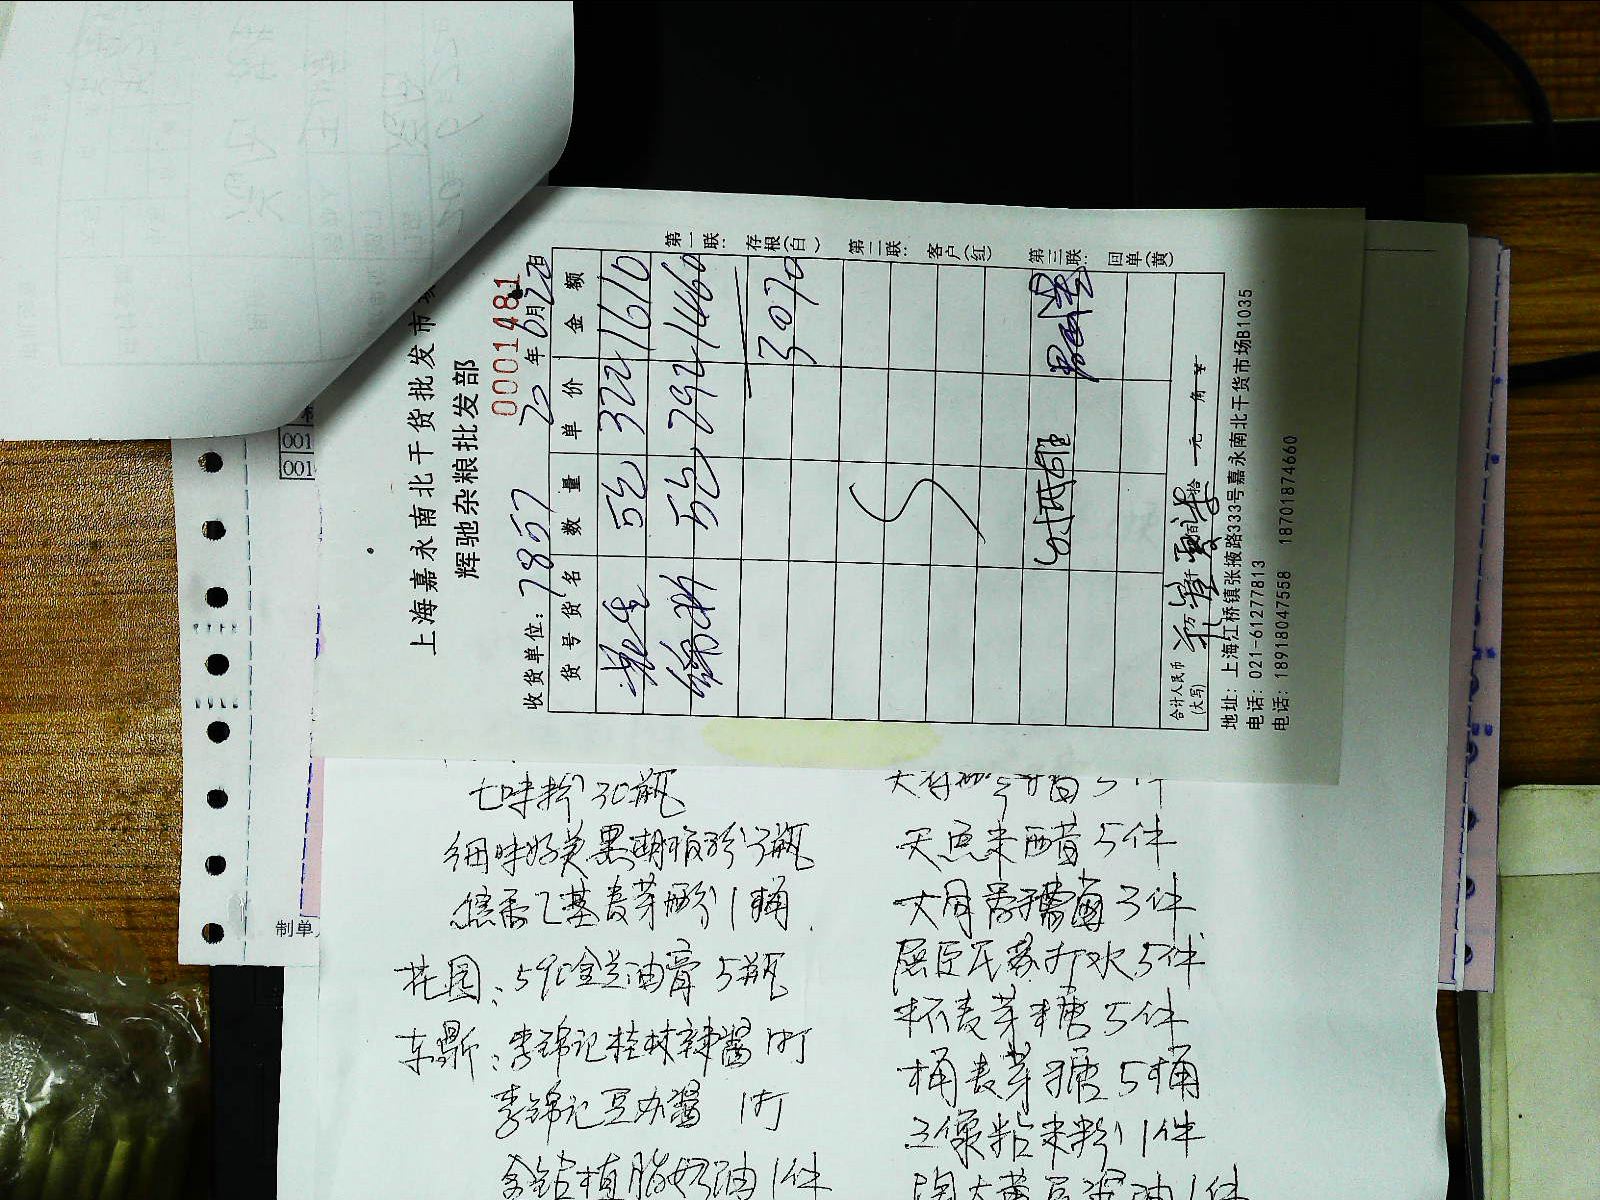 上海嘉永南北干货批发市
辉驰杂粮批发部
0001481
收货单位: 7857 20年6月20日
货号货名 数量 单价 金额
5包 322 1610
5包 292 1460
3070
第一联: 存根(白) 第二联: 客户(红) 第三联: 回单(黄)
合计人民币(大写) 万 仟 佰 拾 元 角
地址: 上海江桥镇张掖路333号嘉永南北干货市场B1035
电话: 021-61277813
电话: 18918047558 18701874660
001
001
制单
七味粉30瓶
细味好美黑胡椒粉3瓶
焦香乙基麦芽酚1桶
花园: 590金兰油膏5瓶
东鼎: 李锦记桂林辣酱1件
李锦记豆瓣酱 1件
金钻植脂奶油1件
天鱼米醋5件
屈臣氏苏打水5件
杯麦芽糖5件
桶麦芽糖5桶
三象粘米粉1件